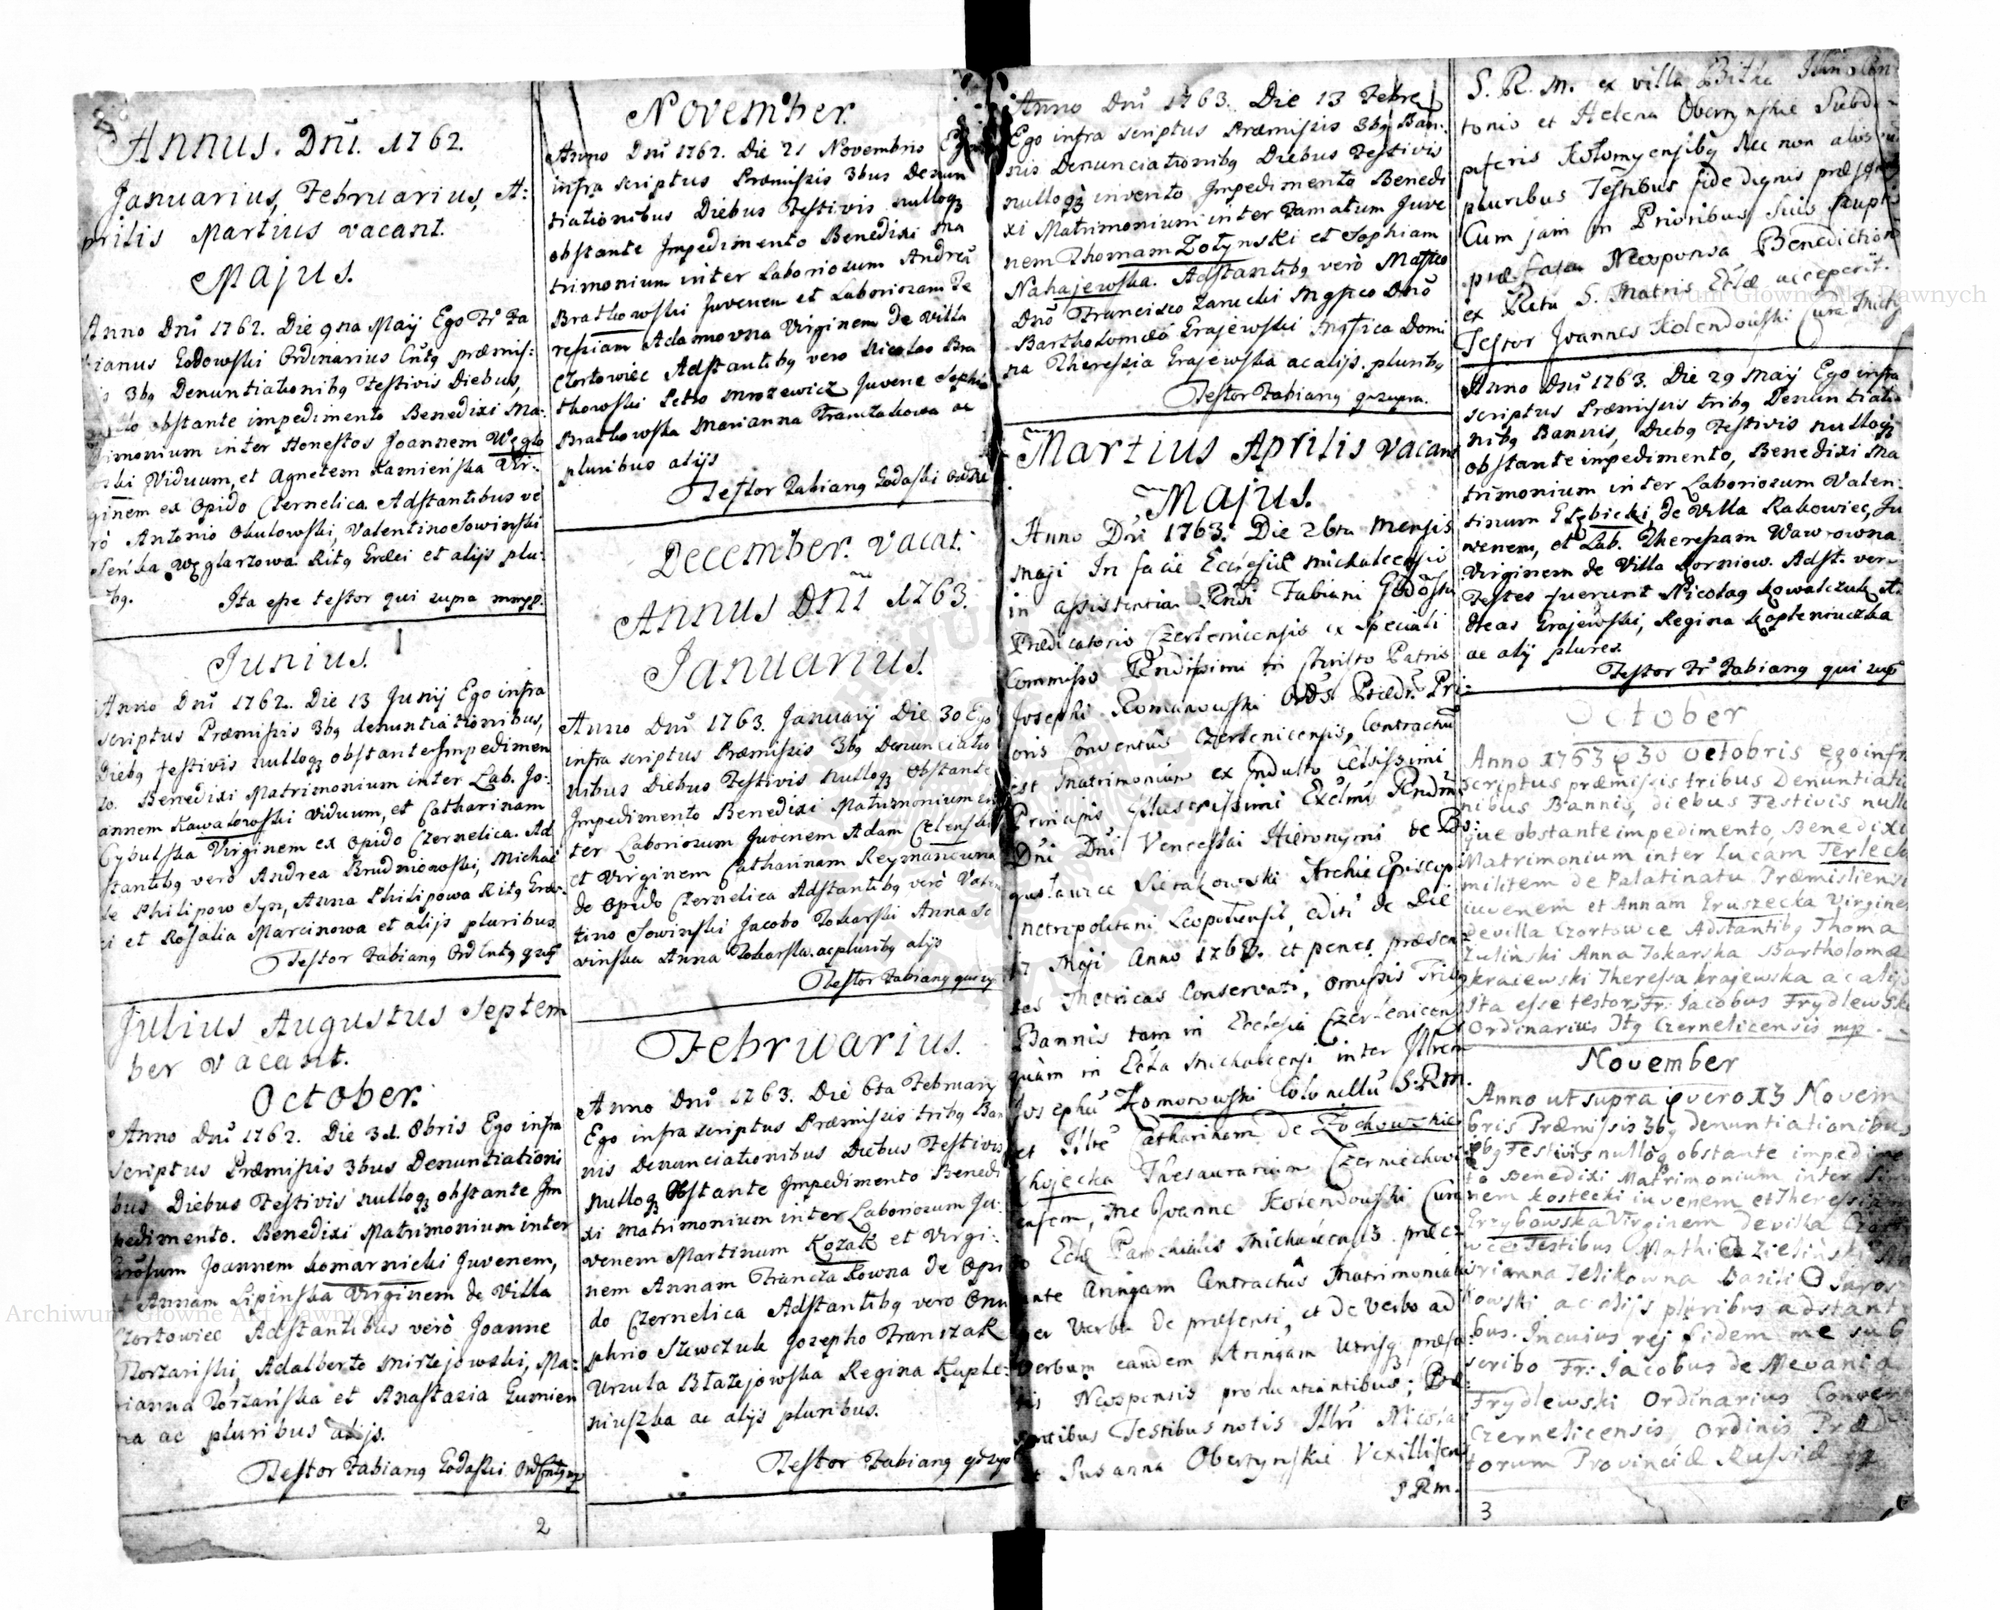 Annus. Dnĩ. 1762.
Januarius, Februarius, A:
prilis Martius vacant.
Majus.
Anno Dnĩ 1762. Die 9na Maÿ Ego Fr Fa
bianus Ordinarius Cũtq præmis:
is 3bq Denuntiationibq Festivis Diebus,
obstante impedimento Benedixi Ma:
imonium inter Honestos Joannem Węglo
ski Viduum, et Agnetem Kamieńska Vir:
ginem ex Opido Czernelica. Adstantibus ve
rò Antonio Okulowski, Valentino Sowinski
Węglarzowa Ritq et alijs plu:
bq. Ita esse testor qui supra mmpp.
Junius.
Anno Dnĩ 1762. Die 13 Junÿ Ego infra
scriptus Præmissis 3bq denuntiationibus,
Diebq festivis nulloq obstante Impedimen
to. Benedixi Matrimonium inter Lab. Jo:
annem Kawalowski Viduum, et Catharinam
Cybulska Virginem ex Opido Czernelica. Ad
stantibq verò Andrea Michae
le Philipow Syn, Anna Philipowa Ritq
ci et Rosalia Marcinowa et alijs pluribus
Testor Fabianq Ord
Julius Augustus Septem
ber vacant.
October.
Anno Dnĩ 1762. Die 31. 8bris Ego infra
scriptus Præmissis 3bus Denuntiationi
bus Diebus Festivis nulloq obstante Im
pedimento. Benedixi Matrimonium inter
Joannem Komarnicki Juvenem,
t Annam Lipinska Virginem de Villa
Czortowiec Adstantibus verò Joanne
Adalberto Mirzejowski, Ma:
rianna et Anastazia Gumien
na ac pluribus alijs.
Testor Fabianq
2
November.
Anno Dnĩ 1762. Die 21 Novembris Ego
infra scriptus Præmissis 3bus Denun
tiationibus Diebus Festivis nulloq
obstante Impedimento Benedixi Ma
trimonium inter Laboriosum Andreã
Bratkowski Juvenem et Laboriosam Te
ressiam Adamowna Virginem de Villa
Czortowiec Adstantibq vero Nicolao Bra
tkowski Petro Mrozewicz Juvene Sophia
Bratkowska Marianna Franczakowa ac
pluribus alijs
Testor Fabianq
December. Vacat.
Annus Dñĩ 1763.
Januarius.
Anno Dnĩ 1763. Januarÿ Die 30 Ego
infra scriptus Præmissis 3bq Denunciatio
nibus Diebus Festivis nulloq Obstante
Impedimento Benedixi Matrimonium in
ter Laboriosum Juvenem Adam Celenski
et Virginem Catharinam Reymanowna
de Opido Czernelica Adstantibq verò Valen
tino Sowinski Jacobo Tokarski Anna So
winska Anna Tokarska. ac pluribq alijs
Testor Fabianq qui sup
Februarius.
Anno Dnĩ 1763. Die 6ta Februarÿ
Ego infra scriptus Præmissis tribq Ban
nis Denunciationibus Diebus Festivis
nulloq Obstante Impedimento Benedi
xi Matrimonium inter Laboriosum Ju:
venem Martinum Kozak et Virgi:
nem Annam Franczakowna de Opi
do Czernelica Adstantibq vero Onu
phrio Szewczuk Jozepho Franszak
Urzula Błazejowska Regina Kaple:
niuszka ac alijs pluribus.
Testor Fabianq q supra
Anno Dnĩ 1763. Die 13 Febre
Ego infra scriptus Præmissis 3bq Ban:
nis Denunciationibq Diebus Festivis
nulloq invento Impedimento Benedi
xi Matrimonium inter Famatum Juve
nem Thomam Zołynski et Sophiam
Nahajewska. Adstantibq verò Mgfico
Dnõ Francisco Zarucki Mgfico Dnõ
Bartholomæo Grajewski Mgfica Domi
na Theressia Grajewska ac alijs. pluribq
Testor Fabianq q supra.
Martius Aprilis vacant
Majus.
Anno Dni 1763. Die 26ta Mensis
Maji In facie Ecclesiæ Michalcensis
in assistentia Rndi Fabiani
Prædicatoris Czerlenicensis ex speciali
Commisso Rendissimi in christo Patris
Josephi Romanowski Ords Præd: Pri:
oris Conventûs Czerlenicensis, Contractũ
est Matrimoniũ ex Indulto Celsissimi
Principis Illustrissimi Excelmi Rendmi
Dñi Dñi Venceslai Hieronymi de Bo
guslawice Sierakowski Archi Episcopi
Metropolitani Leopoliensis, editi de Die
17 Maji Anno 1763. et penes præsen
tes Metricas Conservati, omissis Tribq
Bannis tam in Ecclesia Czerlenicensi
quàm in Ecla Michalcensi inter Illrem
Josephũ Komorowski Colonellũ S.R.M.
et Illrẽ Catharinam de
Chojecka Thesaurariam Czerniechovi
ensem, me Joanne Kolendowski Curat
o Eclæ Parochialis Michalcensis præce
dente Aringam Contractûs Matrimonialis
per Verba de præsenti, et de Verbo ad
Verbum eandem Aringam Utrisq præfa:
tis Neosponsis pronuntiantibus; Præ
sentibus Testibus notis Illri Nicolao
et Susanna Obertynskie Vexilliferis
S.R.M.
S. R. M. ex villa
tonio et Helena Obertynskie Subda
piferis Kołomyensibq Nec non aliis
pluribus Testibus fide dignis præsentibq
Cum jam in Prioribus suis Nuptiis
præfata Neosponsa Benediction
ex Ritu S. Matris Eclæ acceperit.
Testor Joannes Kolendowski
Anno Dnĩ 1763. Die 29 Maÿ Ego infra
scriptus Præmissis tribq Denuntiatio
nibq Bannis, Diebq Festivis nulloq
obstante impedimento, Benedixi Ma
trimonium inter Laboriosum Valen:
tinum de Villa Rakowiec, Ju
venem, et Lab. Theressam Wawrowna
Virginem de Villa Korniow. Adst. verò
Testes fuerunt Nicolaq Kowalczuk, A
dreas Grajewski, Regina Kapleniuczka
ac alÿ plures.
Testor Fr Fabianq qui sup
October
Anno 1763 φ 30 octobris ego infr
scriptus præmissis tribus Denuntiatio
nibus Bannis, diebus Festivis nullo
que obstante impedimento, Benedixi
Matrimonium inter Lucam Terlecki
militem de Palatinatu Præmisliensi
iuvenem et Annam Gruszecka Virginem
de villa Czortowce Adstantibq Thoma
Zuliński Anna Tokarska Bartholomæ
krajewski Theressa krajewska ac alijs
Ita esse testor Fr: Jacobus Frydlewski
Ordinarius Czernelicensis mp.
November
Anno ut supra φ vero 13 Novem
bris Præmissis 3bq denuntiationibus
bq Festivis nulloq obstante impedimen
to Benedixi Matrimonium inter
nem Kostecki iuvenem et Theressia
Grzybowska Virginem de villa Czorto
wce Testibus Mathia Zieliński Ma
rianna Jelikowna
kowski ac alijs pluribus adstanti
bus. In cuius rej fidem me sub
scribo Fr: Jacobus de Mevania
Frydlewski Ordinarius Conven
Czernelicensis Ordinis Præd
torum Provinciæ Russiæ
3
Archiwum Główne Akt Dawnych
Archiwum Główne Akt Dawnych